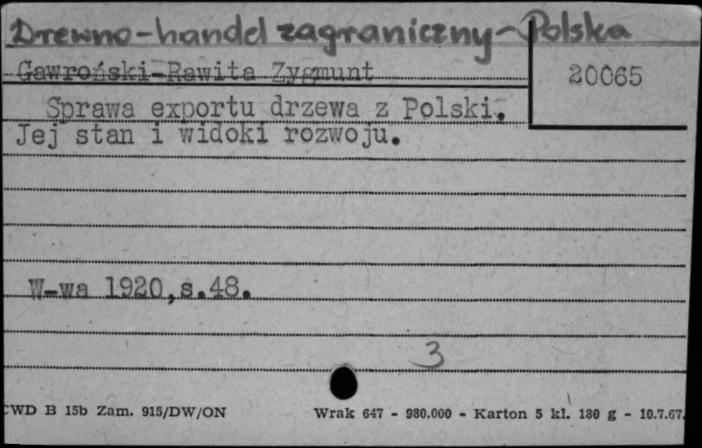 Drewno-handel zagraniczny-Polska
Gawroński-Rawita Zygmunt
20065
Sprawa exportu drzewa z Polski.
Jej stan i widoki rozwoju.
W-wa 1920,s.48.
3
CWD B 15b Zam. 915/DW/ON
Wrak 647 - 980.000 - Karton 5 kl. 180 g - 10.7.67.